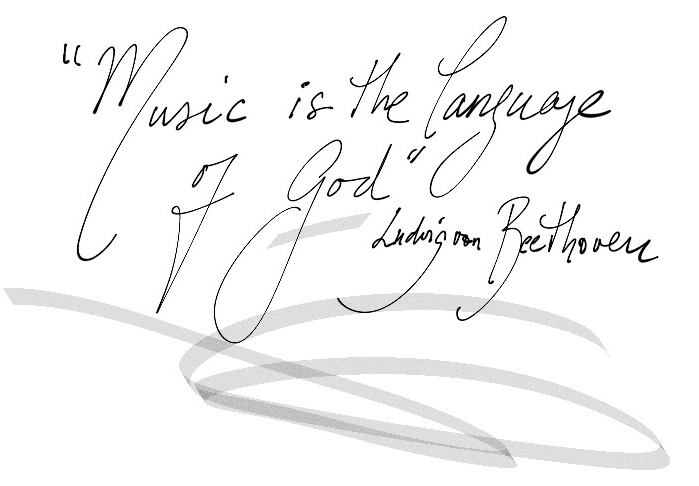 “Music is the Language
of God”
Ludwig von Beethoven